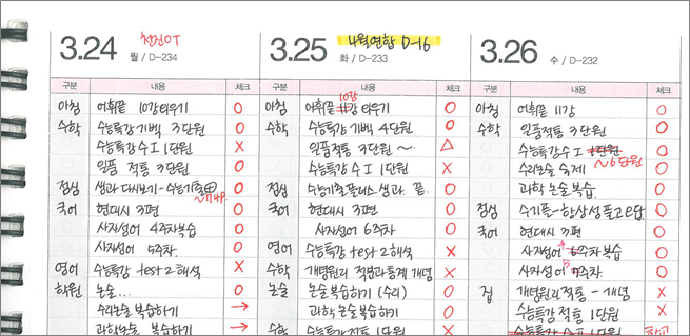 3.24 월 / D-234
구분 내용 체크
아침 어휘끝 10강 외우기 O
수학 수능특강 기벡 3단원 O
수능특강 수I 1단원 X
일품 적통 3단원 O
점심 생과 다시보기-수능기출
국어 현대시 3편 O
사자성어 4주차 복습 O
사자성어 5주차 O
영어 수능특강 test 2 해석 X
학원 논술... O
수리논술 복습하기 →
과학논술 복습하기 →
4월연합 D-16
3.25 화 / D-233
구분 내용 체크
10강
아침 어휘끝 11강 외우기 O
수학 수능특강 기벡 4단원 O
일품적통 3단원 ~ △
수능특강 수I 1단원 X
점심 수능기출플러스 생과. 끝. O
국어 현대시 3편 O
사자성어 6주차 O
영어 수능특강 test 2 해석 X
수학 개념원리 적분과통계 개념 X
논술 논술 복습하기 (수리) O
과학논술 복습하기 O
수학 수능특강 적통 1단원 X
3.26 수 / D-232
구분 내용 체크
아침 어휘끝 11강 O
수학 일품적통 3단원 O
수능특강 수I 1단원 O
~6단원
수리논술 숙제 O
과학논술 복습 O
점심 수기플-항상성 풀고 오답 O
국어 현대시 3편 O
4
사자성어 6주차 복습 O
5
사자성어 7주차 O
집 개념원리 적통 - 개념 X
수능특강 적통 1단원 X
수능특강 수I 1단원